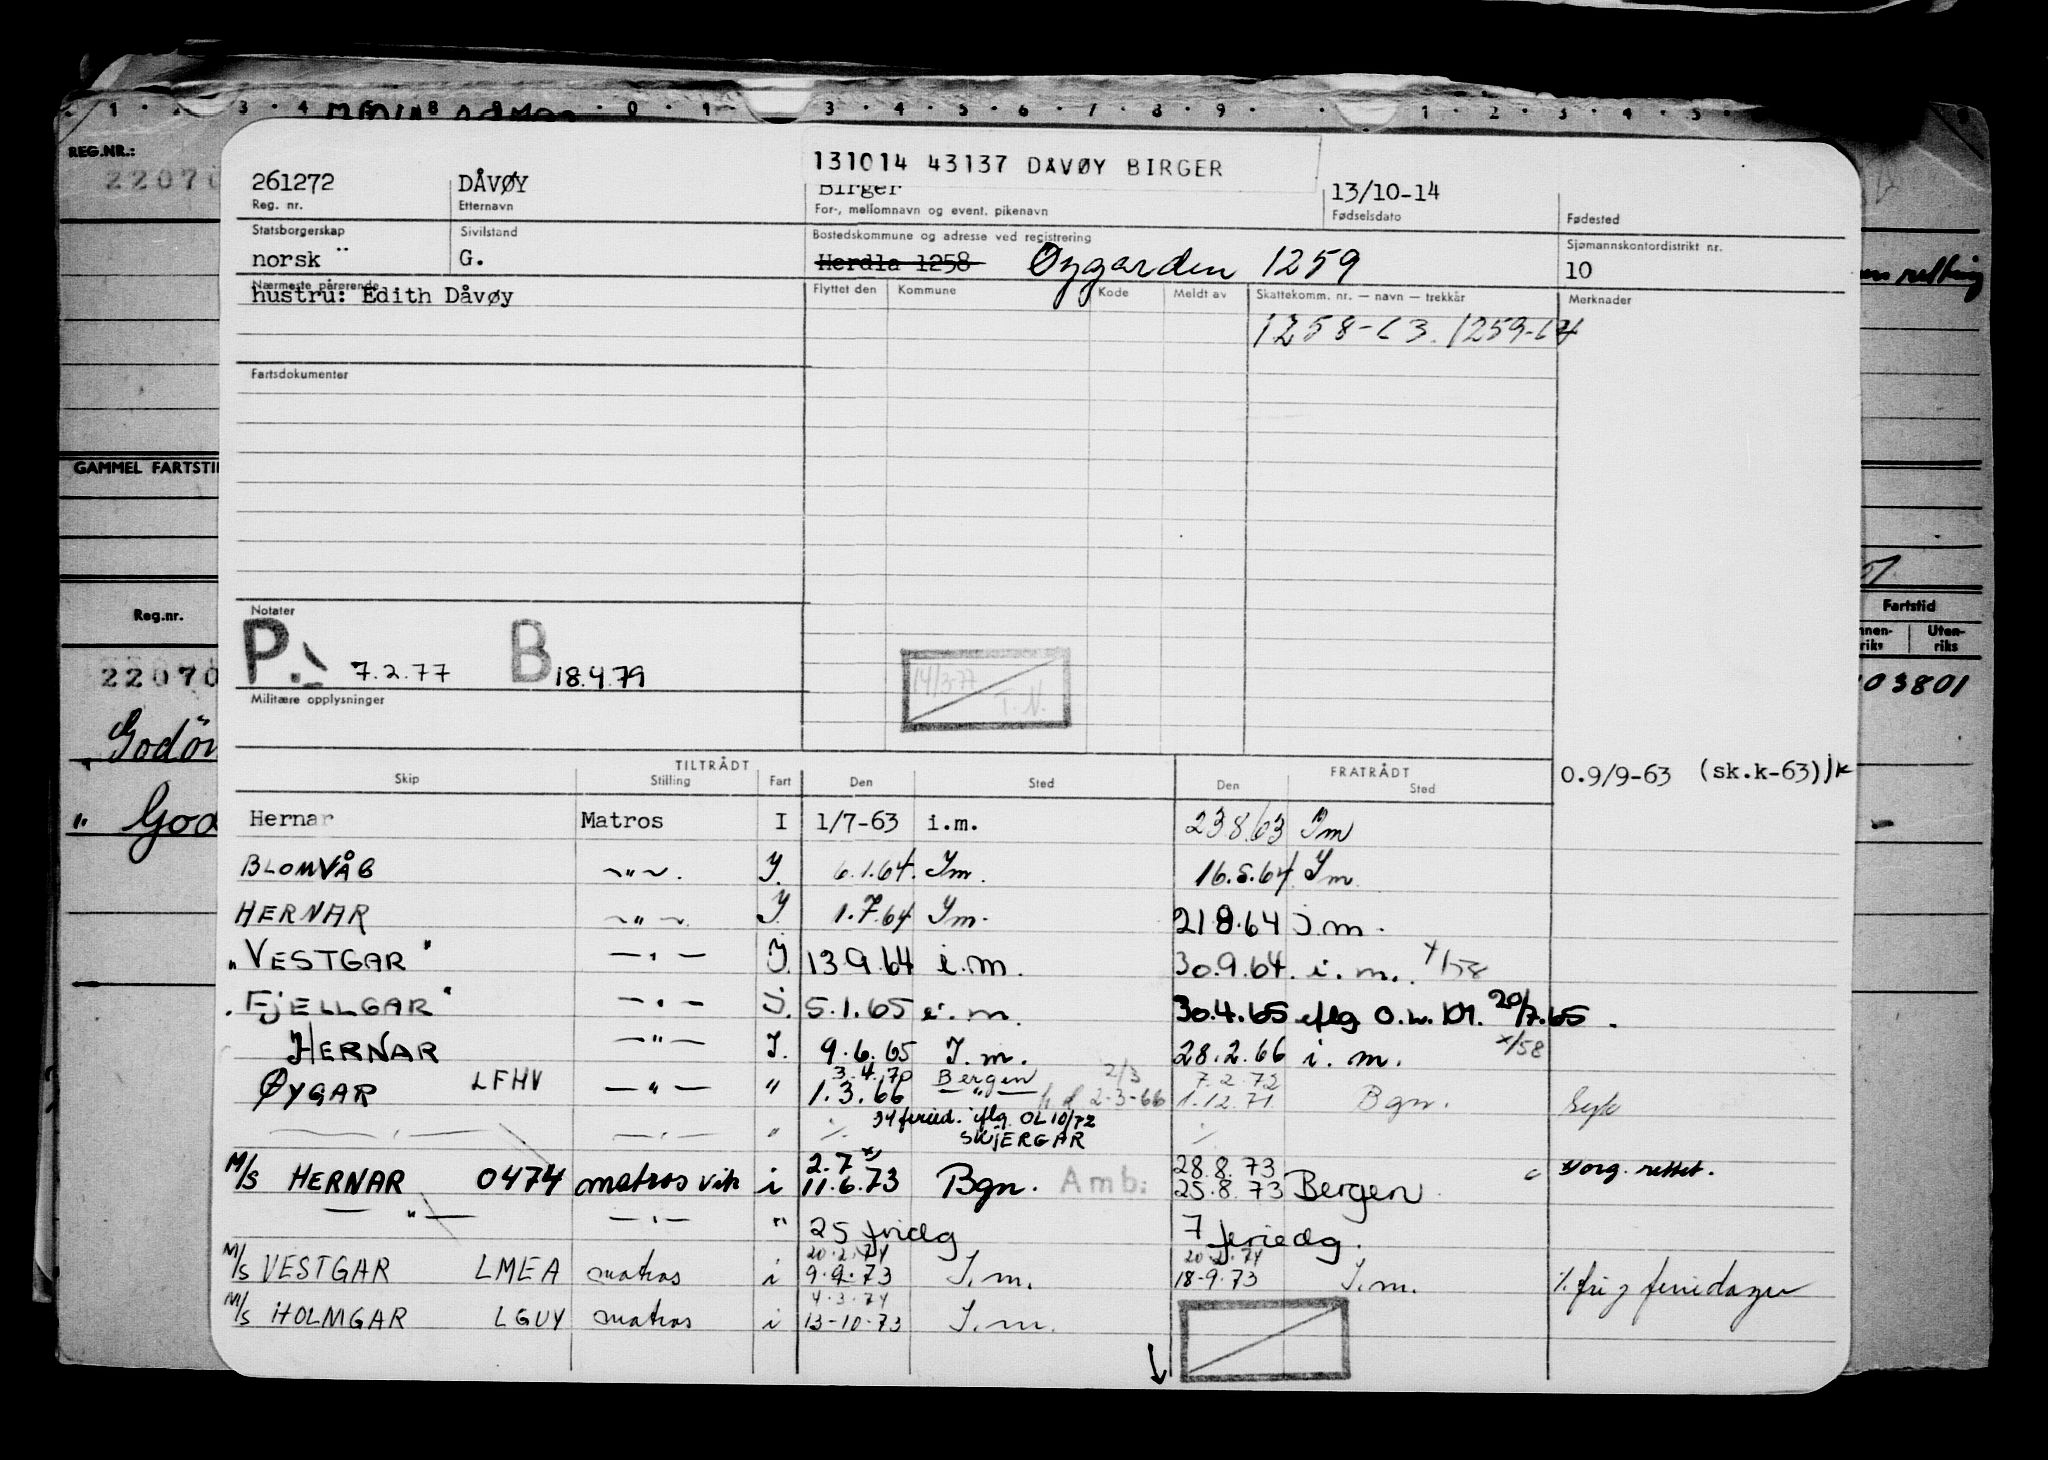 REG.NR.:
22070
131014 43137 DÅVØY BIRGER
261272 DÅVØY Birger 13/10-14
Reg. nr. Etternavn For-, mellomnavn og event. pikenavn Fødselsdato Fødested
Statsborgerskap Sivilstand Bostedskommune og adresse ved registrering Sjømannskontordistrikt nr.
norsk G. Herdla 1258 Øygarden 1259 10
Nærmeste pårørende Flyttet den Kommune Kode Meldt av Skattekomm. nr. — navn — trekkår Merknader
hustru: Edith Dåvøy
1258-63. 1259-64
Fartsdokumenter
GAMMEL FARTSTI
Notater
P. 7.2.77 B 18.4.79
14/3 77
T.N.
Militære opplysninger
Reg.nr.
22070
Godö
" God
Fartstid
Uten-
riks
03801
TILTRÅDT FRATRÅDT
Skip Stilling Fart Den Sted Den Sted
0.9/9-63 (sk.k-63)jk
Hernar Matros I 1/7-63 i.m. 23.8.63 Im
BLOMVÅG —"—. I. 6.1.64. Im. 16.5.64. Im
HERNAR —"— I. 1.7.64 Im. 21.8.64 i.m.
"VESTGAR" —"— I. 13.9.64 i.m. 30.9.64. i.m. x/58
"FJELLGAR" —"— i. 5.1.65 i.m. 30.4.65 iflg O.L.M. 20/7.65.
HERNAR —"— I. 9.6.65 I.m. 28.2.66 i.m. x/58
3.4.70 Bergen 2/3 7.2.72
ØYGAR LFHV —"— " 1.3.66 —"— 2-3-66 1.12.71 Bgn. Syk
34 feried. iflg. OL 10/72
SKJERGAR
2.7 x) 28.8.73
M/S HERNAR 0474 matros vik i 11.6.73 Bgn. Amb. 25.8.73 Bergen x) org. rettet.
—"— —"— " 25 fridg 7 feriedg.
20.2.74 20.2.74
M/S VESTGAR LMEA matros i 9.9.73 I.m. 18-9.73 I.m. % fri g feriedager
4.3.74
M/S HOLMGAR LGUY matros i 13-10-73 I.m.